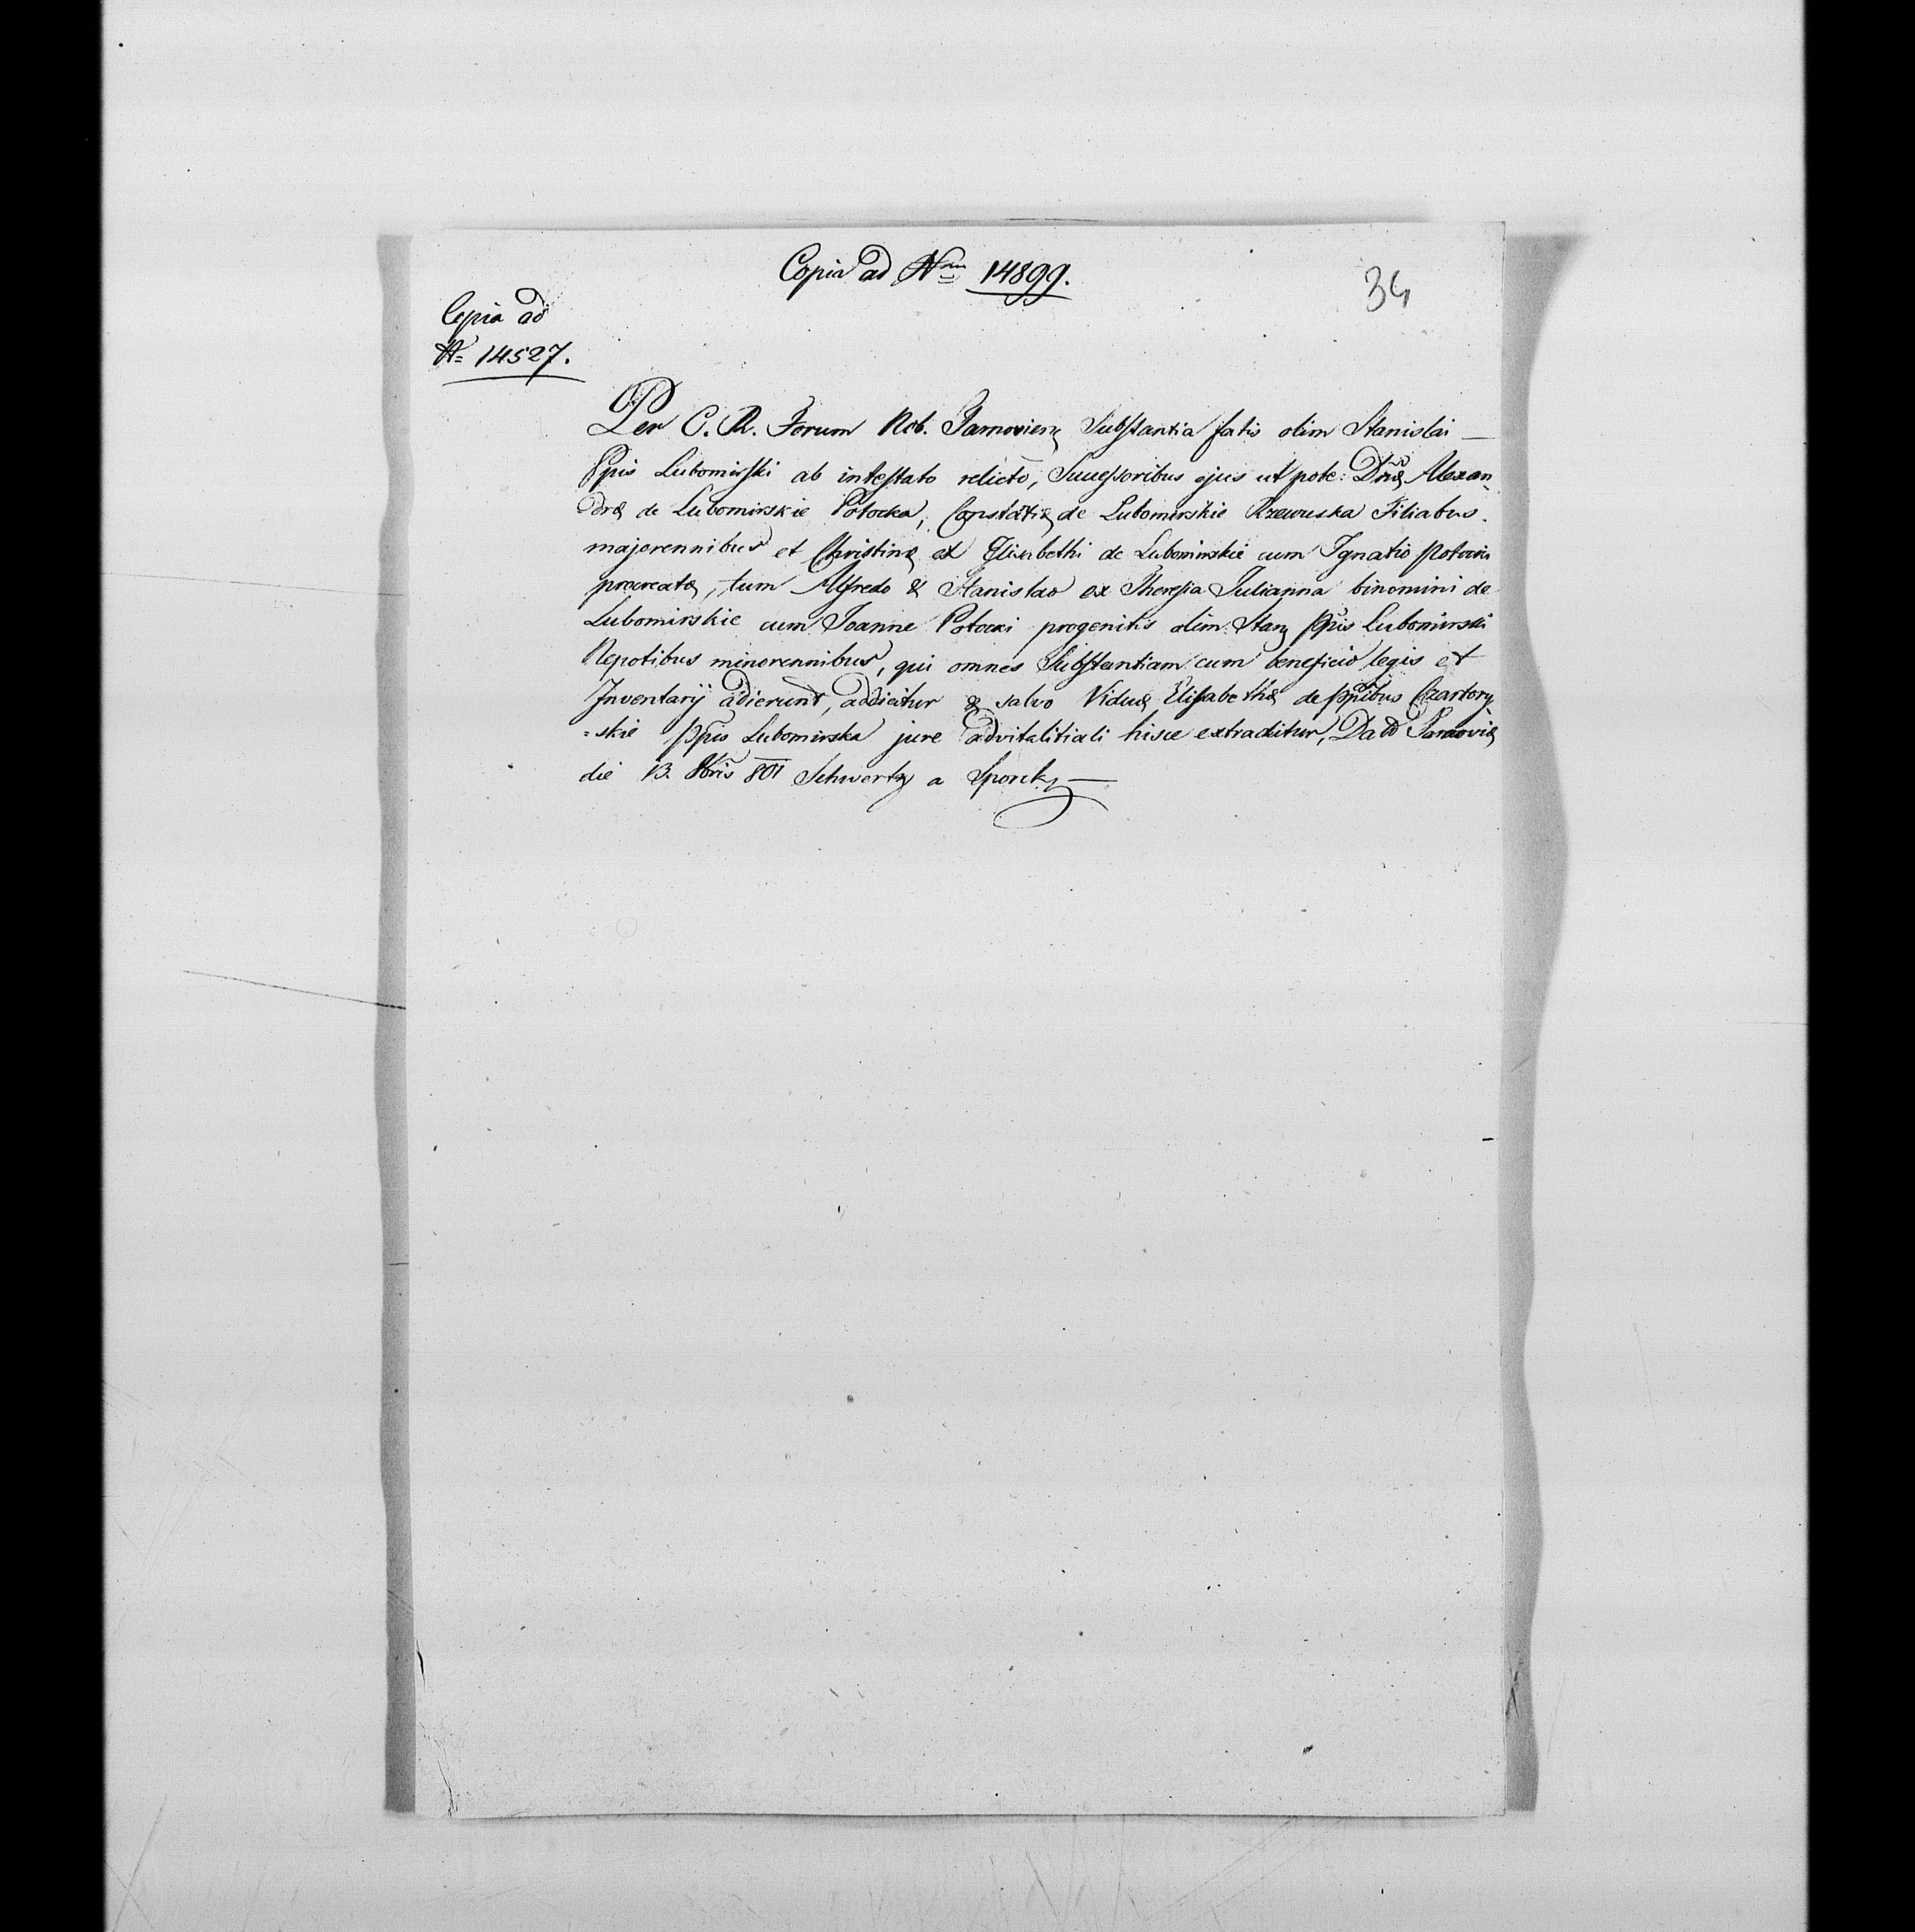 Copia ad Nrum 14899.
34
Copia ad
N= 14527.
Per C. R. Forum Nob. Tarnovien Substantia fatis olim Stanislai —
Ppis Lubomirski ab intestato relicto, Successoribus ejus ut pote: Dnae Alexan-
drae de Lubomirskie Potocka, Constãtiae de Lubomirskie Rzewuska Filiabus
majorennibus et Christinae ex Elisabethi de Lubomirskie cum Ignatio Potocki
procreatae, tum Alfredo & Stanislao ex Theresia Julianna binomini de
Lubomirskie cum Joanne Potocki progenitis olim Stan Ppis Lubomirski
Nepotibus minorennibus, qui omnes Substantiam cum beneficio legis et
Inventarij adierunt, addicitur & salvo Viduae Elisabethae de Ppibus Czartory
=skie Ppis Lubomirska jure advitalitiali hisce extraditur, Datt Tarnoviae
die 13. 8bris 801 Schwertz a Sporck